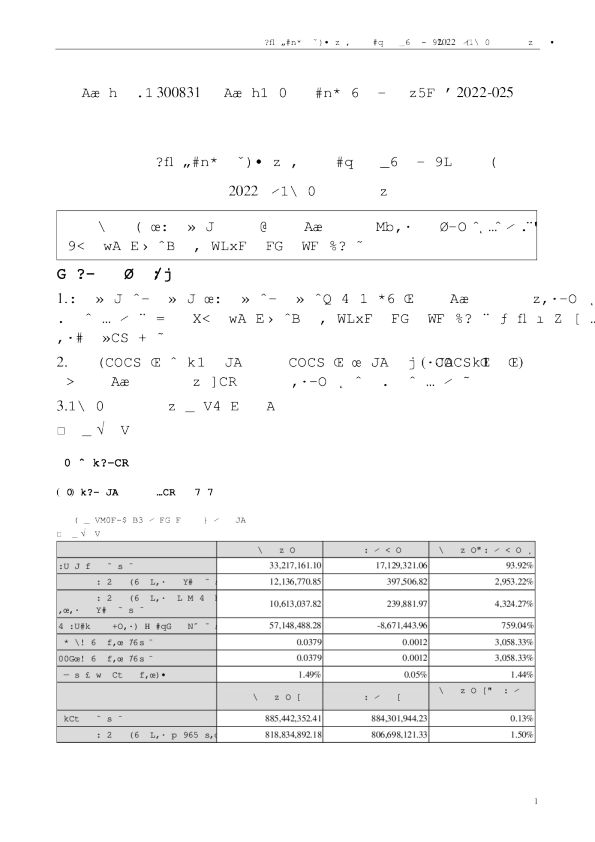 ?fl „#n* ˜)• z , #q _6 – 9 2022 ⁄1\ 0 z •
Aæ h .1 300831 Aæ h1 0 #n* 6 – z5F ′ 2022-025
?fl „#n* ˇ)• z , #q _6 – 9L (
2022 ⁄1\ 0 z
\ ( œ: » J @ Aæ Mb,· Ø–O ˆ ¸…ˆ ⁄ .¨
9< wA E› ˆB , WLxF FG WF %? ˜
G ?– Ø /j
1.: » J ˆ– » J œ: » ˆ– » ˆQ 4 1 *6 Œ Aæ z,·–O ¸
. ˆ … ⁄ ¨ = X< wA E› ˆB , WLxF FG WF %? ¨ ƒ fl ı Z [ …
,·# »CS + ˜
2. (COCS Œ ˆ k1 JA COCS Œ œ JA j (· Œ)
> Aæ z ]CR ,·–O ¸ ˆ . ˆ … ⁄ ˜
3.1\ 0 z _ V4 E A
□ _√ V
0 ˆ k?–CR
( 0) k?– JA …CR 7 7
( _ VM0F–$ B3 ⁄ FG F } ⁄ JA
□ _√ V
\ z O : ⁄ < O \ z O": ⁄ < O ¸
:U J f ˆ s ˜ 33,217,161.10 17,129,321.06 93.92%
: 2 (6 L,· Y# ˜ 12,136,770.85 397,506.82 2,953.22%
: 2 (6 L,· L M 4
,œ,· Y# ˆ s ˜ 10,613,037.82 239,881.97 4,324.27%
4 :U#k +O,·) H #qG N˝ ˜ 57,148,488.28 -8,671,443.96 759.04%
* \! 6 f,œ 76s ˜ 0.0379 0.0012 3,058.33%
00Gœ! 6 f,œ 76s ˜ 0.0379 0.0012 3,058.33%
— s £ w Ct f,œ)• 1.49% 0.05% 1.44%
\ z O [ : ⁄ [ \ z O [" : ⁄
kCt ˆ s ˜ 885,442,352.41 884,301,944.23 0.13%
: 2 (6 L,· p 965 s, 818,834,892.18 806,698,121.33 1.50%
1